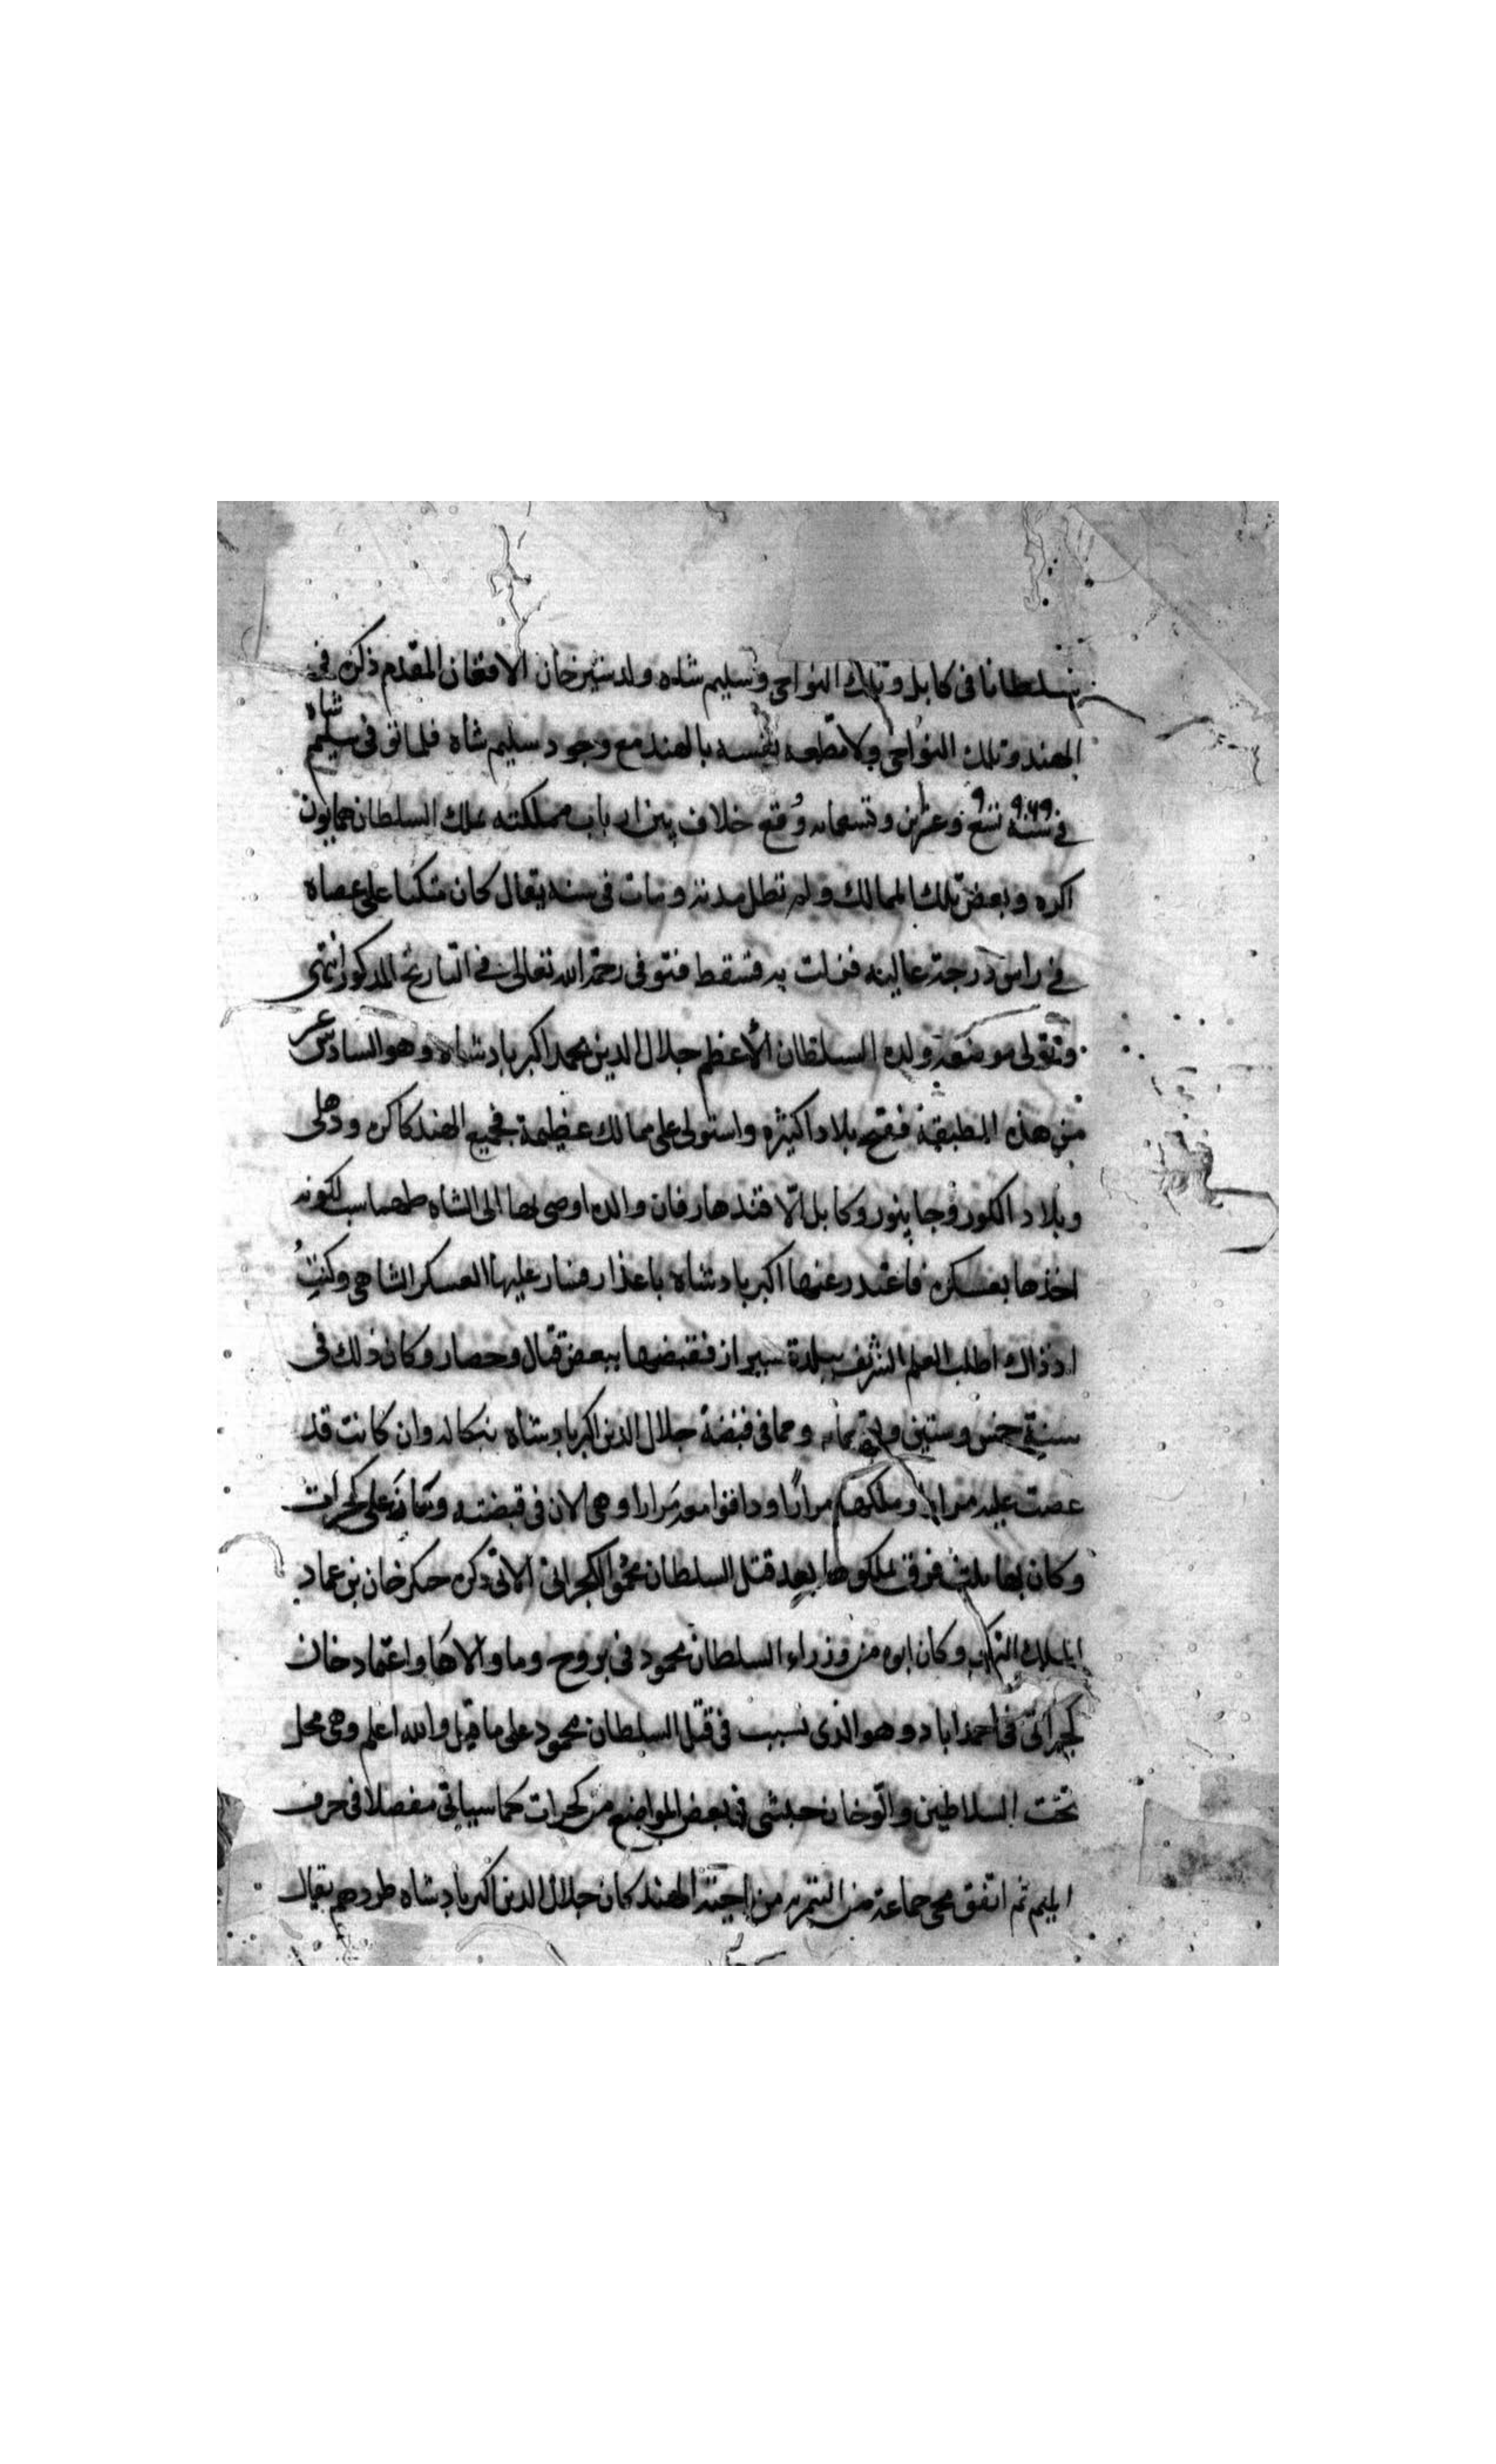 سلطانا في كابل وتلك النواحي وسليم شاه ولد شيرخان الافغان المقدم ذكره في
الهند وتلك النواحي ولا مطعه لنفسه بالهند مع وجود سليم شاه فلما توفى سليم شاه
في سنة ٩٦٩ تسع وتسعمايه وقع خلاف بين ارباب مملكته ملك السلطان همايون
اكره وبعض تلك الممالك ولم تطل مدته ومات في سنه يقال كان متكيا على عصاه
في راس درجة عاليه فزلت به فسقط فتوفى رحمه الله تعالى في التاريخ المذكور انتهى
وتولى موضعه ولده السلطان الأعظم جلال الدين محمد اكبر بادشاه وهو السادس عشر
من هذه الطبقة ففتح بلادا كثيره واستولى على ممالك عظيمة فجميع الهند كاكره ودهلى
وبلاد الكور وجاپنور وكابل الّا قندهار فان والده اوصى بها الى الشاه طهماسب لكونه
اخذها بعسكره فاعتذر عنها اكبر بادشاه باعذار فسار عليها العسكر الشاهي وكنتُ
اذ ذاك اطلب العلم الشريف ببلدة شيراز فقبضها ببعض قتال وحصار وكان ذلك في
سنة خمس وستين وتسعمايه ومما في قبضة جلال الدين اكبر بادشاه بنكاله وان كانت قد
عصت عليه مرارا وملكها مرارًا ودافنوا معه مرارا وهي الان في قبضته وكذا على كجرات
وكان بها ثلث فرق ملكوها بعد قتل السلطان محمود الكجراتي الاتي ذكره جنكز خان بن عماد
الملك التركي وكان ابوه من وزراء السلطان محمود في بروج وما والاها واعتماد خان
كجراتي في احمداباد وهو الذى تسبب في قتل السلطان محمود على ما قيل والله اعلم وهي محل
تخت السلاطين والوخان حبشي في بعض المواضع من كجرات كما سيأتي مفصلا في حرف
الميم ثم اتفق مجي جماعة من التمريه من اجنة الهند كان جلال الدين اكبر بادشاه طردهم يقال